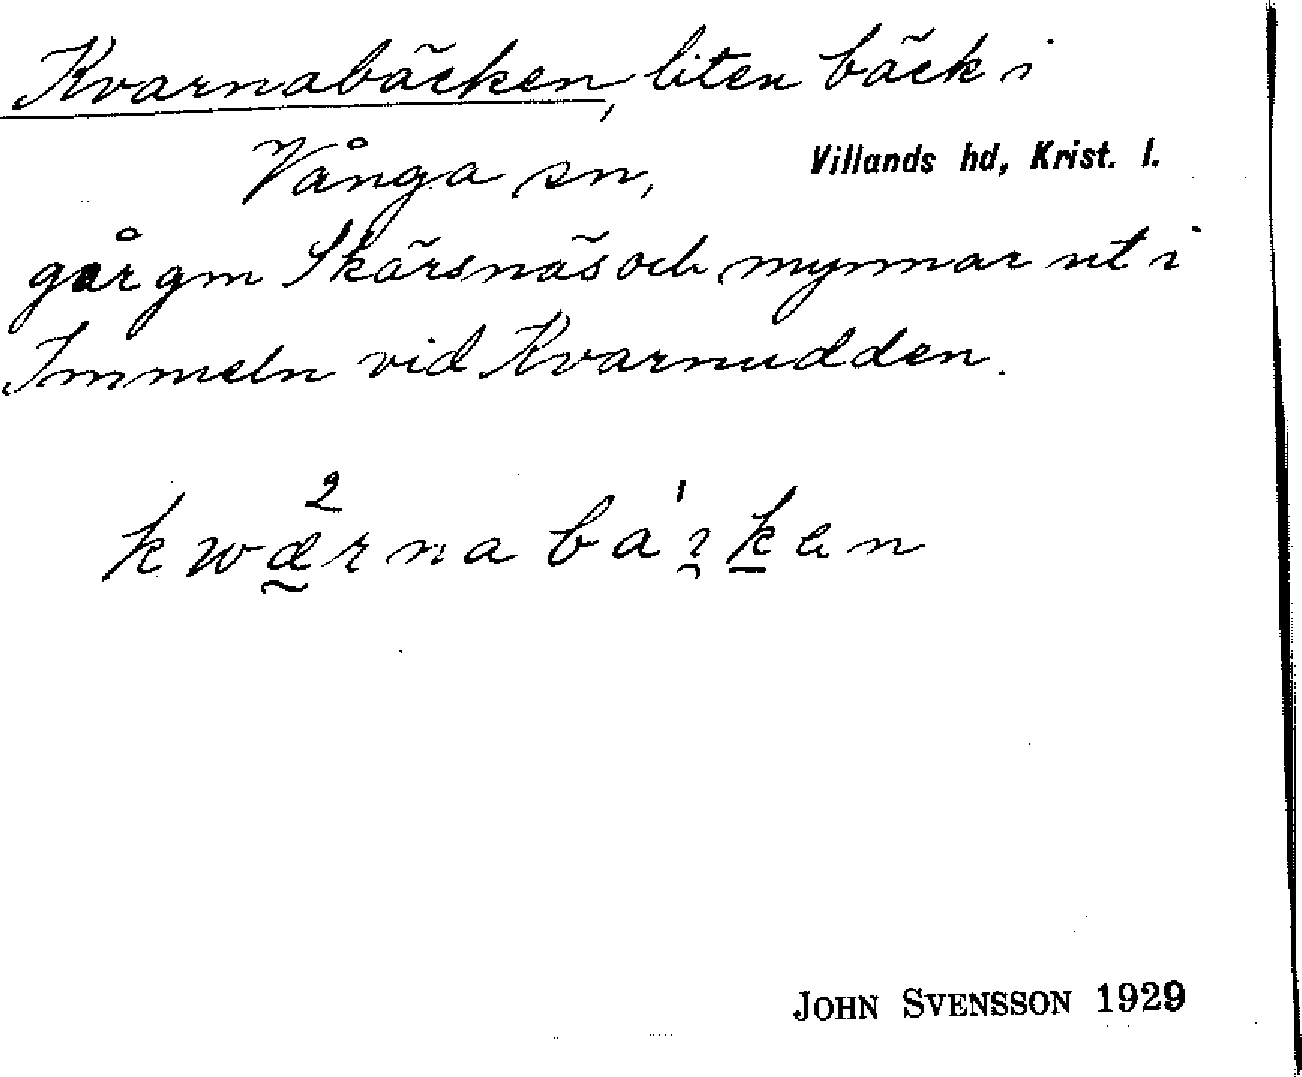 Kvarnabäcken, liten bäck i
Vånga sn, Villands hd, Krist. l.
går gm Skärsnäs och mynnar ut i
Immeln vid Kvarnudden.
JOHN SVENSSON 1929